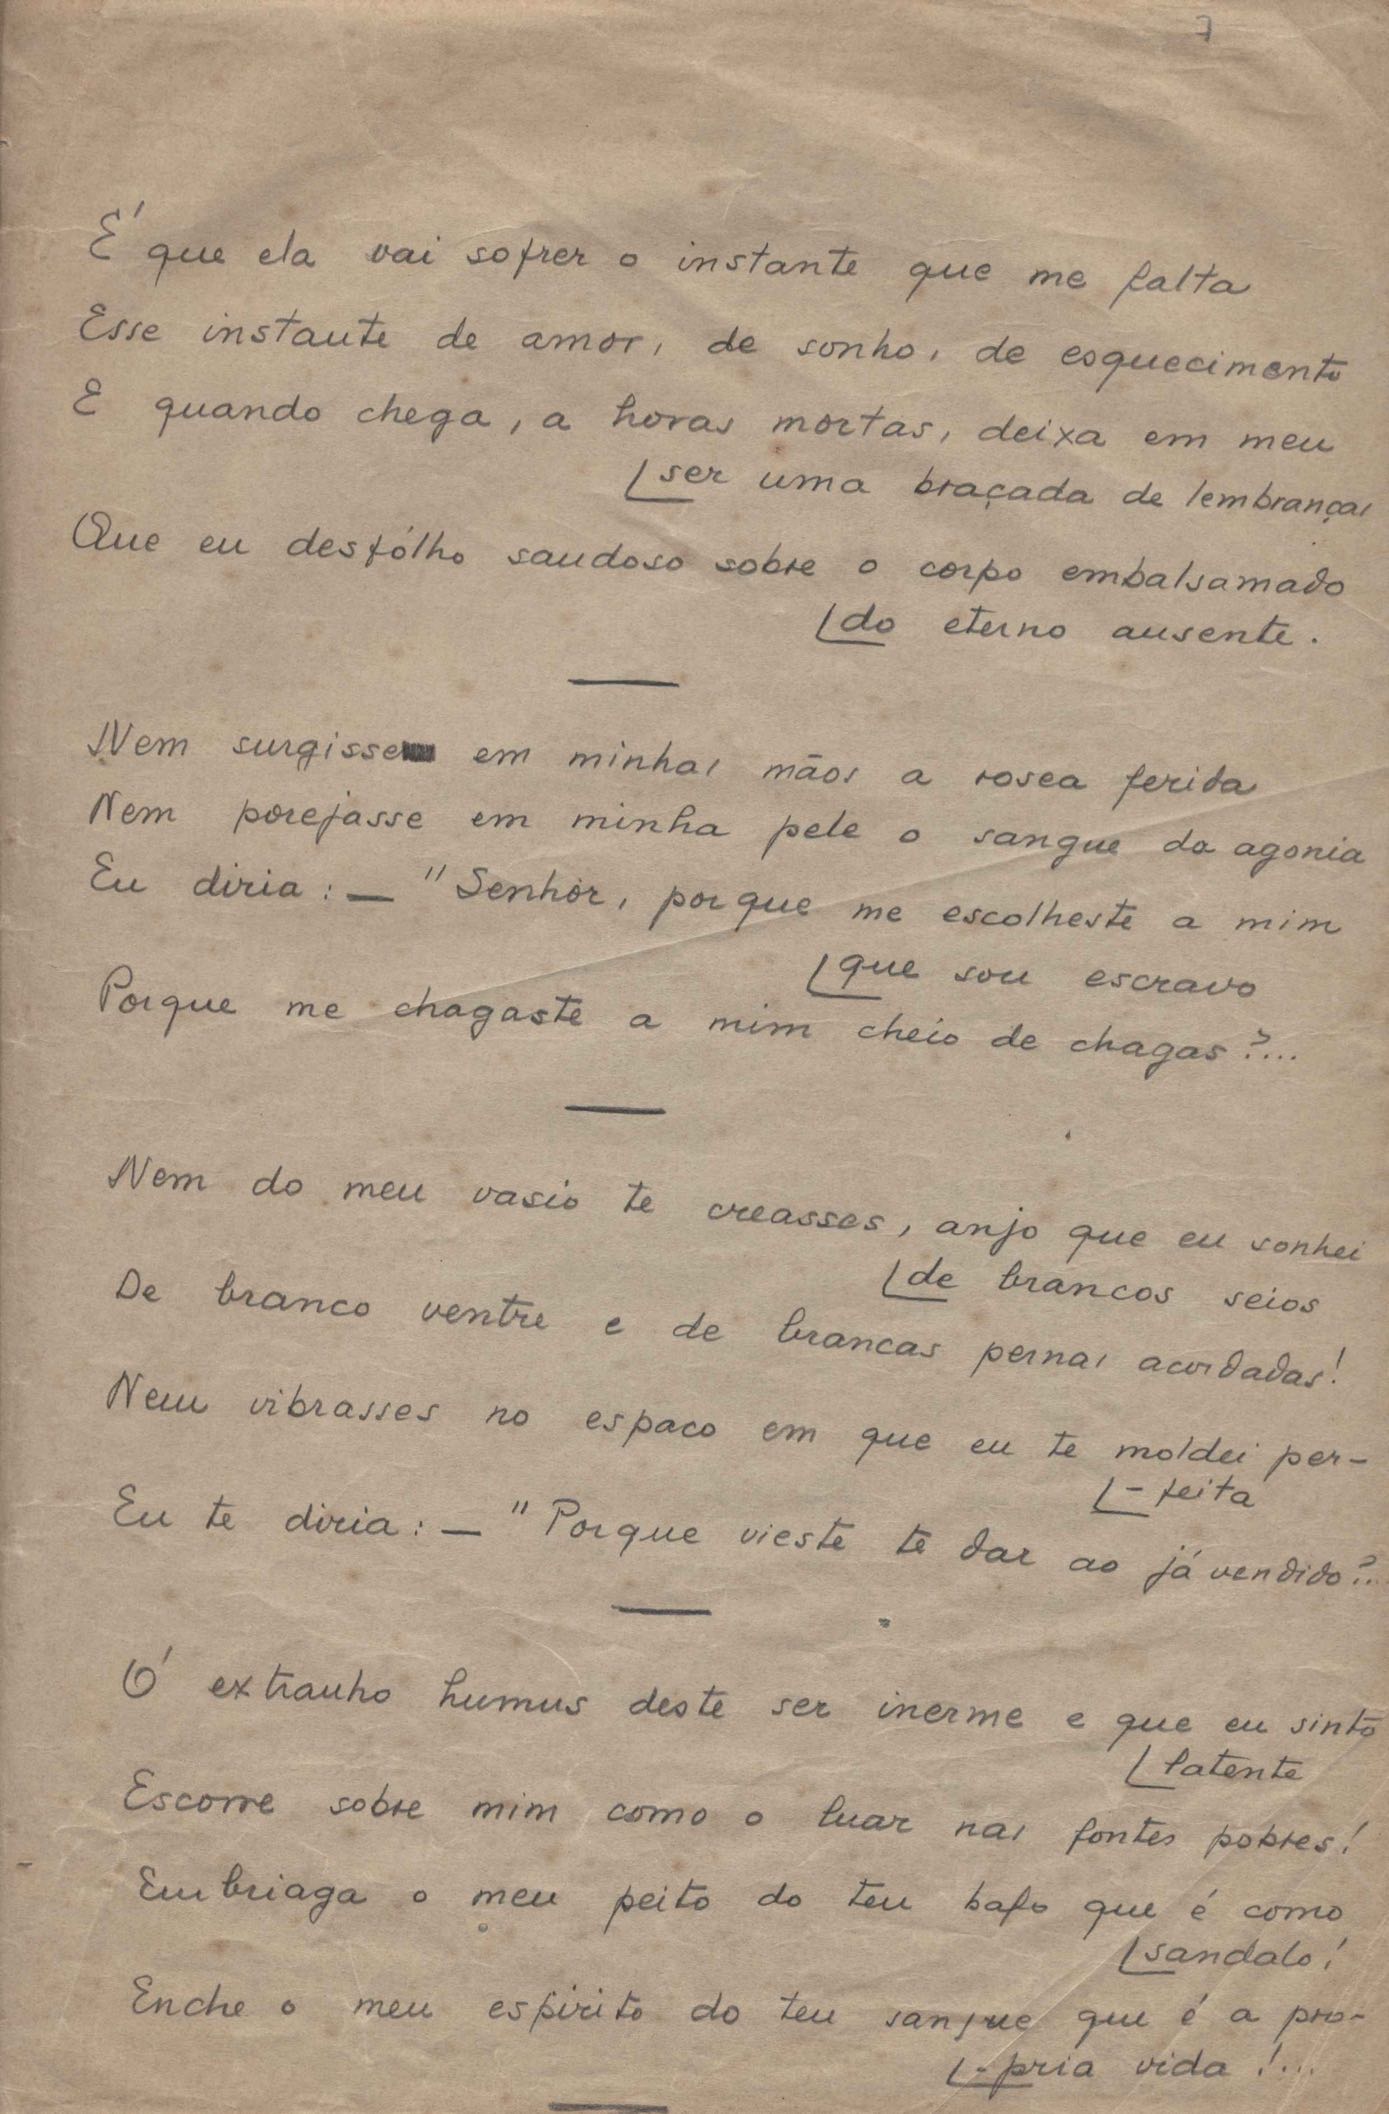 7
É que ela vai sofrer o instante que me falta
Esse instante de amor, de sonho, de esquecimento
E quando chega, a horas mortas, deixa em meu
[ser uma braçada de lembranças
Que eu desfólho saudoso sobre o corpo embalsamado
[do eterno ausente.
Nem surgisse em minhas mãos a rosea ferida
Nem porejasse em minha pele o sangue da agonia
Eu diria: — "Senhor, porque me escolheste a mim
[que sou escravo
Porque me chagaste a mim cheio de chagas?...
Nem do meu vasio te creasses, anjo que eu sonhei
[de brancos seios
De branco ventre e de brancas pernas acordadas!
Nem vibrasses no espaco em que eu te moldei per-
[-feita
Eu te diria: — "Porque vieste te dar ao já vendido?..
Ó extranho humus deste ser inerme e que eu sinto
[latente
Escorre sobre mim como o luar nas fontes pobres!
Embriaga o meu peito do teu bafo que é como
[sandalo!
Enche o meu espirito do teu sangue que é a pro-
[-pria vida!...